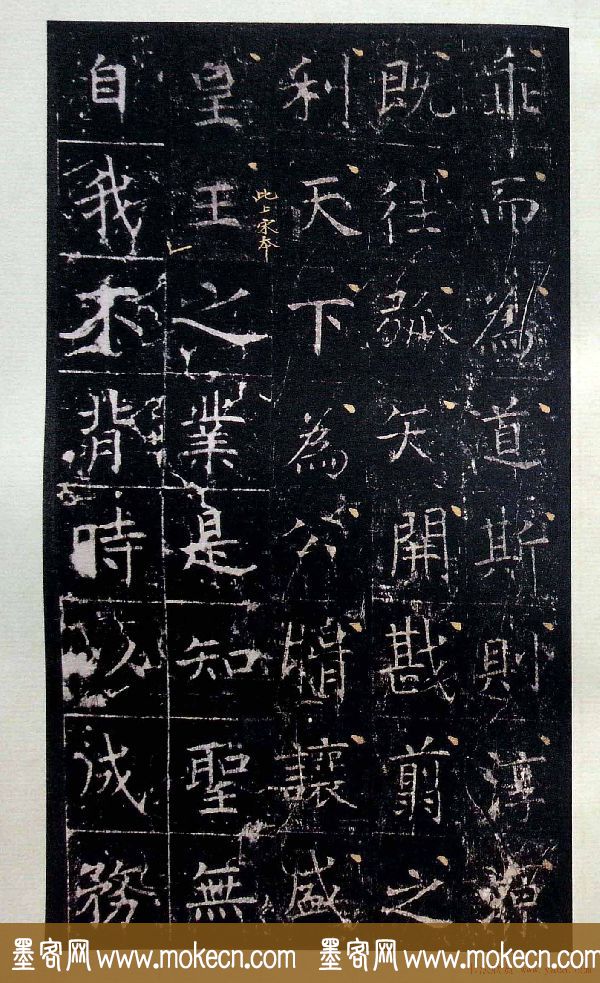 乖而為道斯則淳源
既往弧矢開戡翦之
利天下為公揖讓盛
此上宋
皇王之業是知聖無
自我不背時以成務
墨客网 www.mokecn.com 墨客网 www.mokecn.com